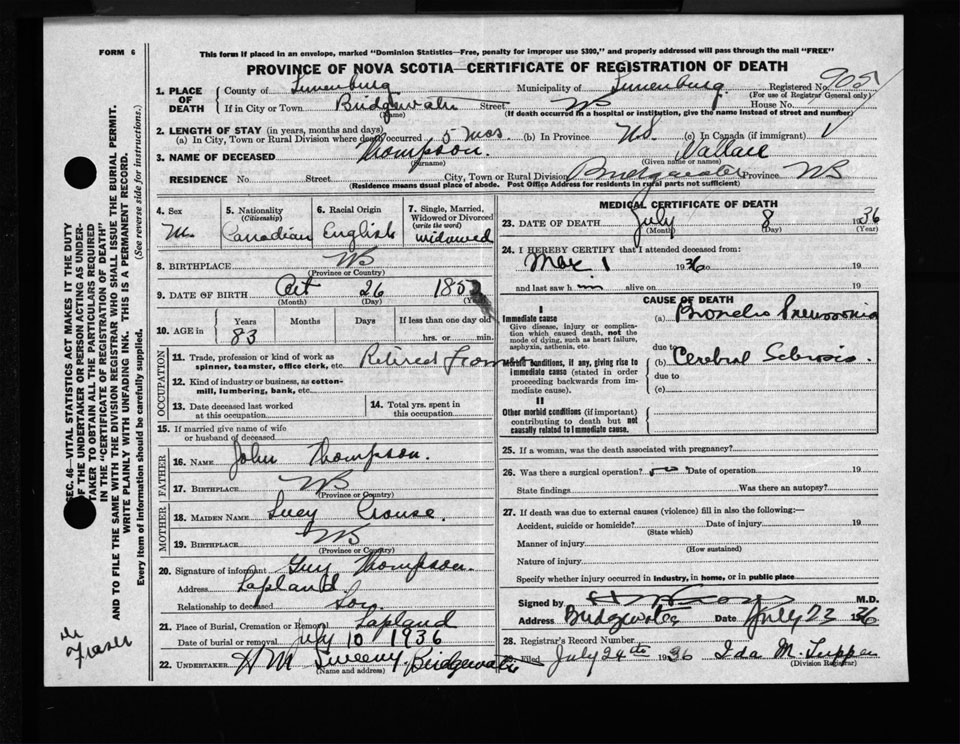 FORM 6
This form if placed in an envelope, marked "Dominion Statistics—Free, penalty for improper use $300," and properly addressed will pass through the mail "FREE"
PROVINCE OF NOVA SCOTIA—CERTIFICATE OF REGISTRATION OF DEATH
1. PLACE OF DEATH County of Lunenburg Municipality of Lunenburg Registered No. 905
(For use of Registrar General only)
If in City or Town Bridgewater Street NS House No.
(Name) (If death occurred in a hospital or institution, give the name instead of street and number)
2. LENGTH OF STAY (in years, months and days)
(a) In City, Town or Rural Division where death occurred 5 mos. (b) In Province (c) In Canada (if immigrant)
3. NAME OF DECEASED Thompson. Wallace
(Surname) (Given name or names)
RESIDENCE No. Street City, Town or Rural Division Bridgewater Province NS
(Residence means usual place of abode. Post Office Address for residents in rural parts not sufficient)
4. Sex M.
5. Nationality (Citizenship) Canadian
6. Racial Origin English
7. Single, Married, Widowed or Divorced (write the word) widowed
8. BIRTHPLACE NS
(Province or Country)
9. DATE OF BIRTH Oct 26 1852
(Month) (Day) (Year)
10. AGE in Years Months Days If less than one day old
83 hrs. or min.
OCCUPATION
11. Trade, profession or kind of work as spinner, teamster, office clerk, etc. Retired
12. Kind of industry or business, as cotton-mill, lumbering, bank, etc.
13. Date deceased last worked at this occupation
14. Total yrs. spent in this occupation
15. If married give name of wife or husband of deceased
FATHER
16. NAME John Thompson.
17. BIRTHPLACE NS
(Province or Country)
MOTHER
18. MAIDEN NAME Lucy Crouse.
19. BIRTHPLACE NS
(Province or Country)
20. Signature of informant Guy Thompson.
Address Lapland.
Relationship to deceased Son.
21. Place of Burial, Cremation or Removal Lapland
Date of burial or removal July 10 1936
22. UNDERTAKER H M Sweeny Bridgewater
(Name and address)
MEDICAL CERTIFICATE OF DEATH
23. DATE OF DEATH July 8 1936
(Month) (Day) (Year)
24. I HEREBY CERTIFY that I attended deceased from:
1 1936 to 19
and last saw h im alive on 19
CAUSE OF DEATH
I
Immediate cause
Give disease, injury or complication which caused death, not the mode of dying, such as heart failure, asphyxia, asthenia, etc.
(a) Broncho Pneumonia
due to
Morbid conditions, if any, giving rise to immediate cause (stated in order proceeding backwards from immediate cause).
(b) Cerebral
due to
(c)
II
Other morbid conditions (if important) contributing to death but not causally related to immediate cause.
25. If a woman, was the death associated with pregnancy?
26. Was there a surgical operation? no Date of operation 19
State findings Was there an autopsy?
27. If death was due to external causes (violence) fill in also the following:—
Accident, suicide or homicide? Date of injury 19
(State which)
Manner of injury
(How sustained)
Nature of injury
Specify whether injury occurred in industry, in home, or in public place
Signed by M.D.
Address Bridgewater Date July 23 1936
28. Registrar's Record Number
29. Filed July 24th 1936 Ida M. Tupper
(Division Registrar)
SEC. 46—VITAL STATISTICS ACT MAKES IT THE DUTY
OF THE UNDERTAKER OR PERSON ACTING AS UNDER-
TAKER TO OBTAIN ALL THE PARTICULARS REQUIRED
IN THE "CERTIFICATE OF REGISTRATION OF DEATH"
AND TO FILE THE SAME WITH THE DIVISION REGISTRAR WHO SHALL ISSUE THE BURIAL PERMIT.
WRITE PLAINLY WITH UNFADING INK. THIS IS A PERMANENT RECORD.
Every item of information should be carefully supplied. (See reverse side for instructions.)